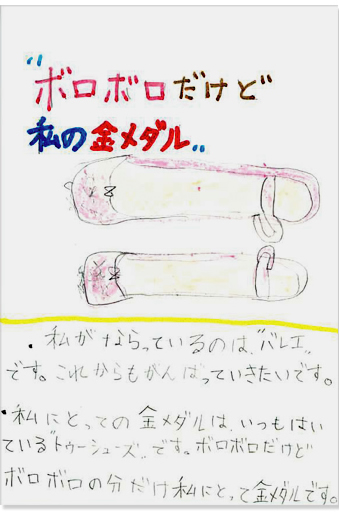 "ボロボロだけど
私の金メダル"
・私がならっているのは、"バレエ"
です。これからもがんばっていきたいです。
・私にとっての金メダルは、いつもはい
ている"トゥーシューズ"です。ボロボロだけど
ボロボロの分だけ私にとって金メダルです。